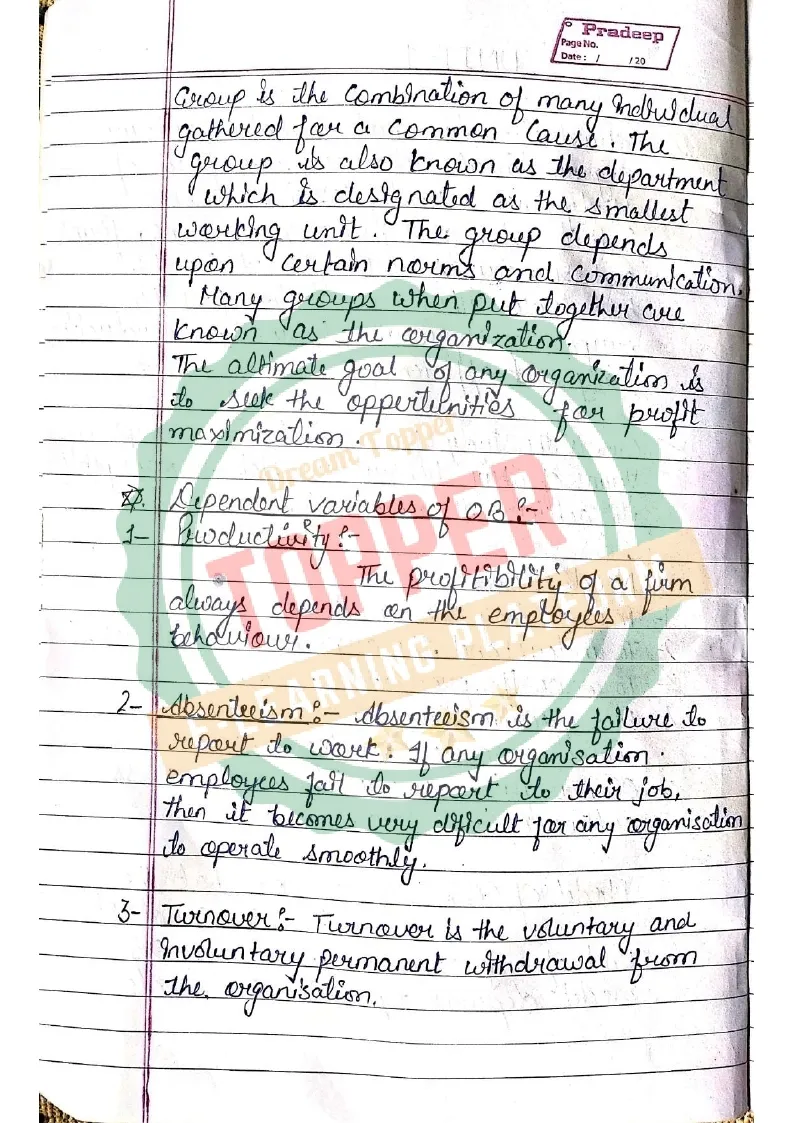 Pradeep
Page No.
Date: / /20
Group is the combination of many individual
gathered for a common cause. The
group is also known as the department
which is designated as the smallest
working unit. The group depends
upon certain norms and communication.
Many groups when put together are
known as the organization.
The altimate goal of any organization is
to seek the oppertunities for profit
maximization.
Dream Topper
Dependent variables of OB:-
1- Productivity:-
TOPPER
The profitibility of a firm
always depends on the employees
behaviour.
LEARNING PLATFORM
2- Absenteeism:- Absenteeism is the failure to
report to work. If any organisation
employees fail to report to their job,
then it becomes very difficult for any organisation
to operate smoothly.
3- Turnover:- Turnover is the voluntary and
Involuntary permanent withdrawal from
the organisation.